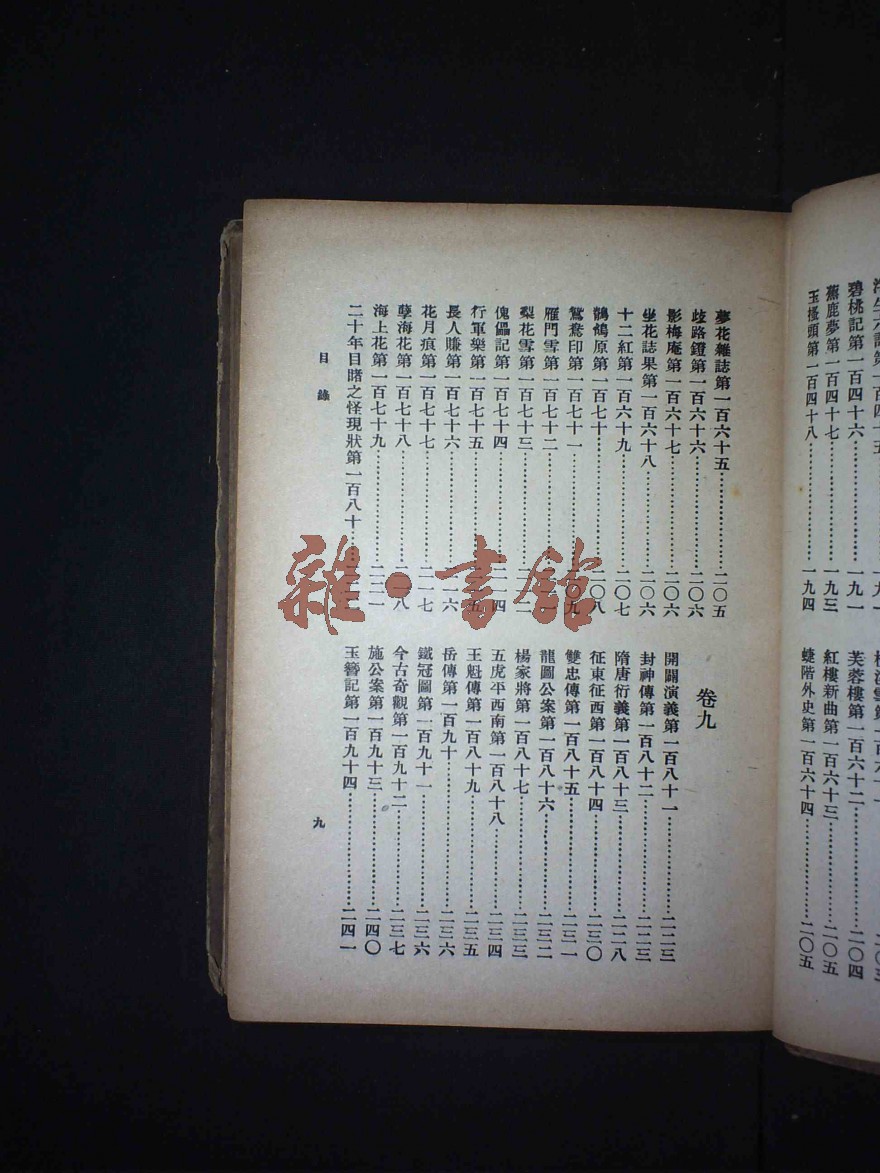 碧桃記第一百四十六……一九一
蕉鹿夢第一百四十七……一九三
玉搔頭第一百四十八……一九四
芙蓉樓第一百六十二……二〇四
紅樓新曲第一百六十三……二〇五
蜨階外史第一百六十四……二〇五
夢花雜誌第一百六十五……二〇五
歧路鐙第一百六十六……二〇六
影梅庵第一百六十七……二〇六
坐花誌果第一百六十八……二〇六
十二紅第一百六十九……二〇七
鶺鴒原第一百七十……二〇八
鴛鴦印第一百七十一……二〇九
雁門雪第一百七十二……
梨花雪第一百七十三……
傀儡記第一百七十四……
行軍樂第一百七十五……
長人賺第一百七十六……
花月痕第一百七十七……二一七
孽海花第一百七十八……二一八
海上花第一百七十九……
二十年目睹之怪現狀第一百八十……
卷九
開闢演義第一百八十一……二二三
封神傳第一百八十二……二二三
隋唐衍義第一百八十三……二二八
征東征西第一百八十四……二三〇
雙忠傳第一百八十五……二三一
龍圖公案第一百八十六……二三二
楊家將第一百八十七……二三三
五虎平西南第一百八十八……二三四
王魁傳第一百八十九……二三五
岳傳第一百九十……二三六
鐵冠圖第一百九十一……二三六
今古奇觀第一百九十二……二三七
施公案第一百九十三……二四〇
玉簪記第一百九十四……二四一
目錄
九
雜·書館